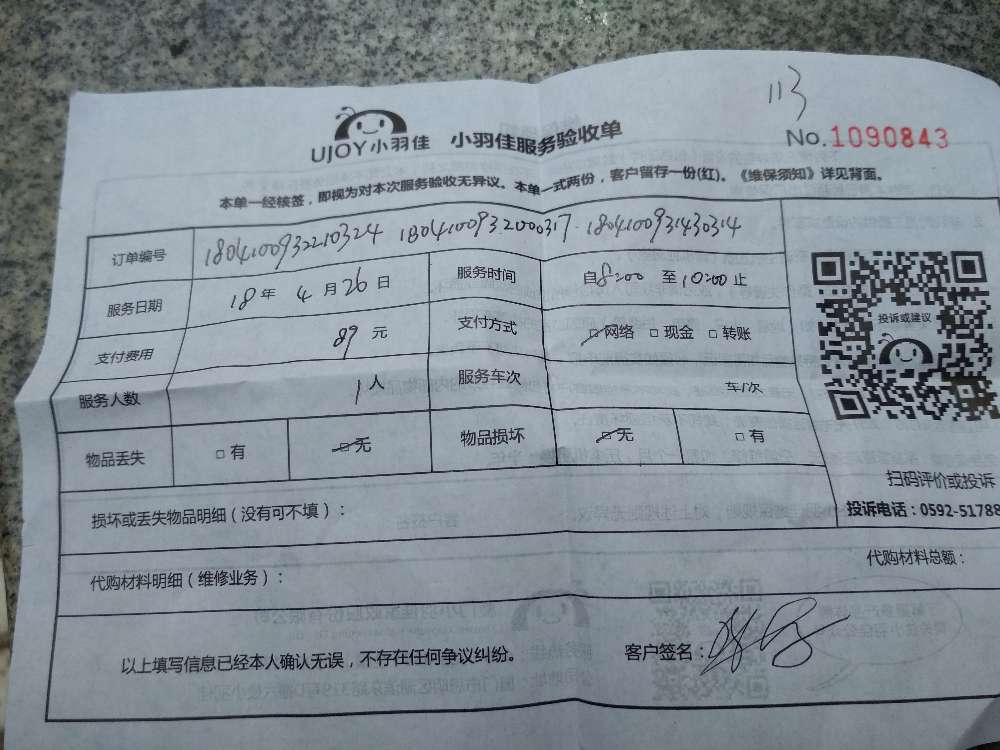 113
UJOY小羽佳 小羽佳服务验收单
No.1090843
本单一经核签，即视为对本次服务验收无异议。本单一式两份，客户留存一份(红)。《维保须知》详见背面。
订单编号 1804100932210324 1804100932000317 1804100931430314
服务日期 18年 4月26日 服务时间 自8:00 至10:00止
支付费用 89元 支付方式 □网络 □现金 □转账
投诉或建议
服务人数 1人 服务车次 车/次
物品丢失 □有 □无 物品损坏 □无 □有
扫码评价或投诉
损坏或丢失物品明细（没有可不填）：
投诉电话：0592-51788
代购材料明细（维修业务）： 代购材料总额：
以上填写信息已经本人确认无误，不存在任何争议纠纷。 客户签名：